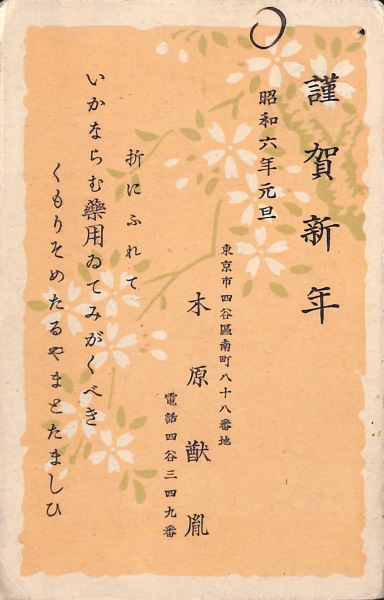 謹賀新年
昭和六年元旦
東京市四谷區南町八十八番地
木原猷胤
電話四谷三四九番
折にふれて
いかならむ藥用ゐてみがくべき
くもりそめたるやまとたましひ